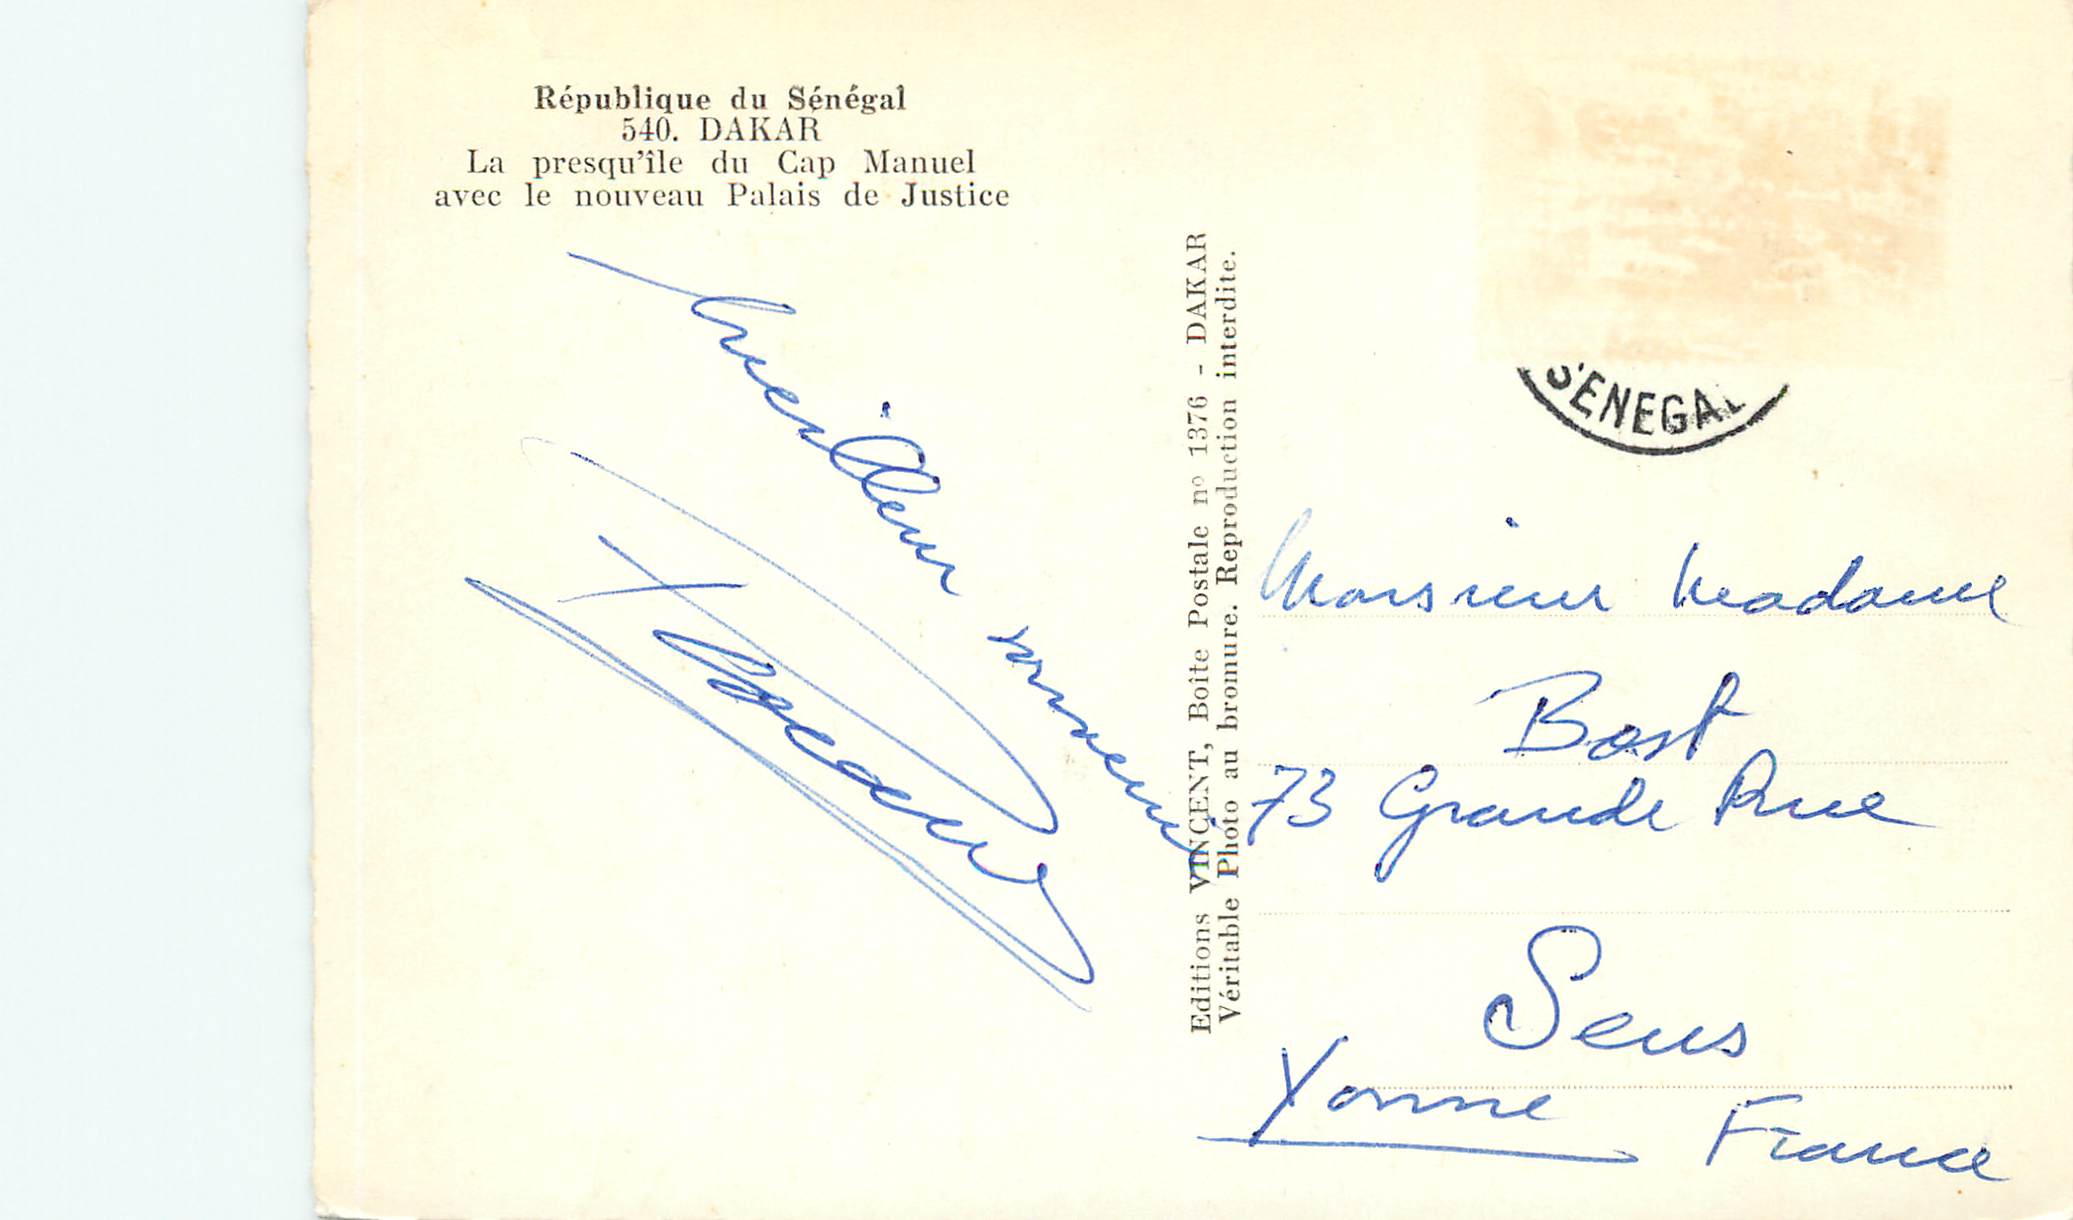 République du Sénégal
540. DAKAR
La presqu'île du Cap Manuel
avec le nouveau Palais de Justice
meilleur souvenir
Editions VINCENT, Boîte Postale nº 1376 - DAKAR
Véritable Photo au bromure. Reproduction interdite.
SENEGAL
Monsieur Madame
Bost
73 Grande Rue
Sens
Yonne France